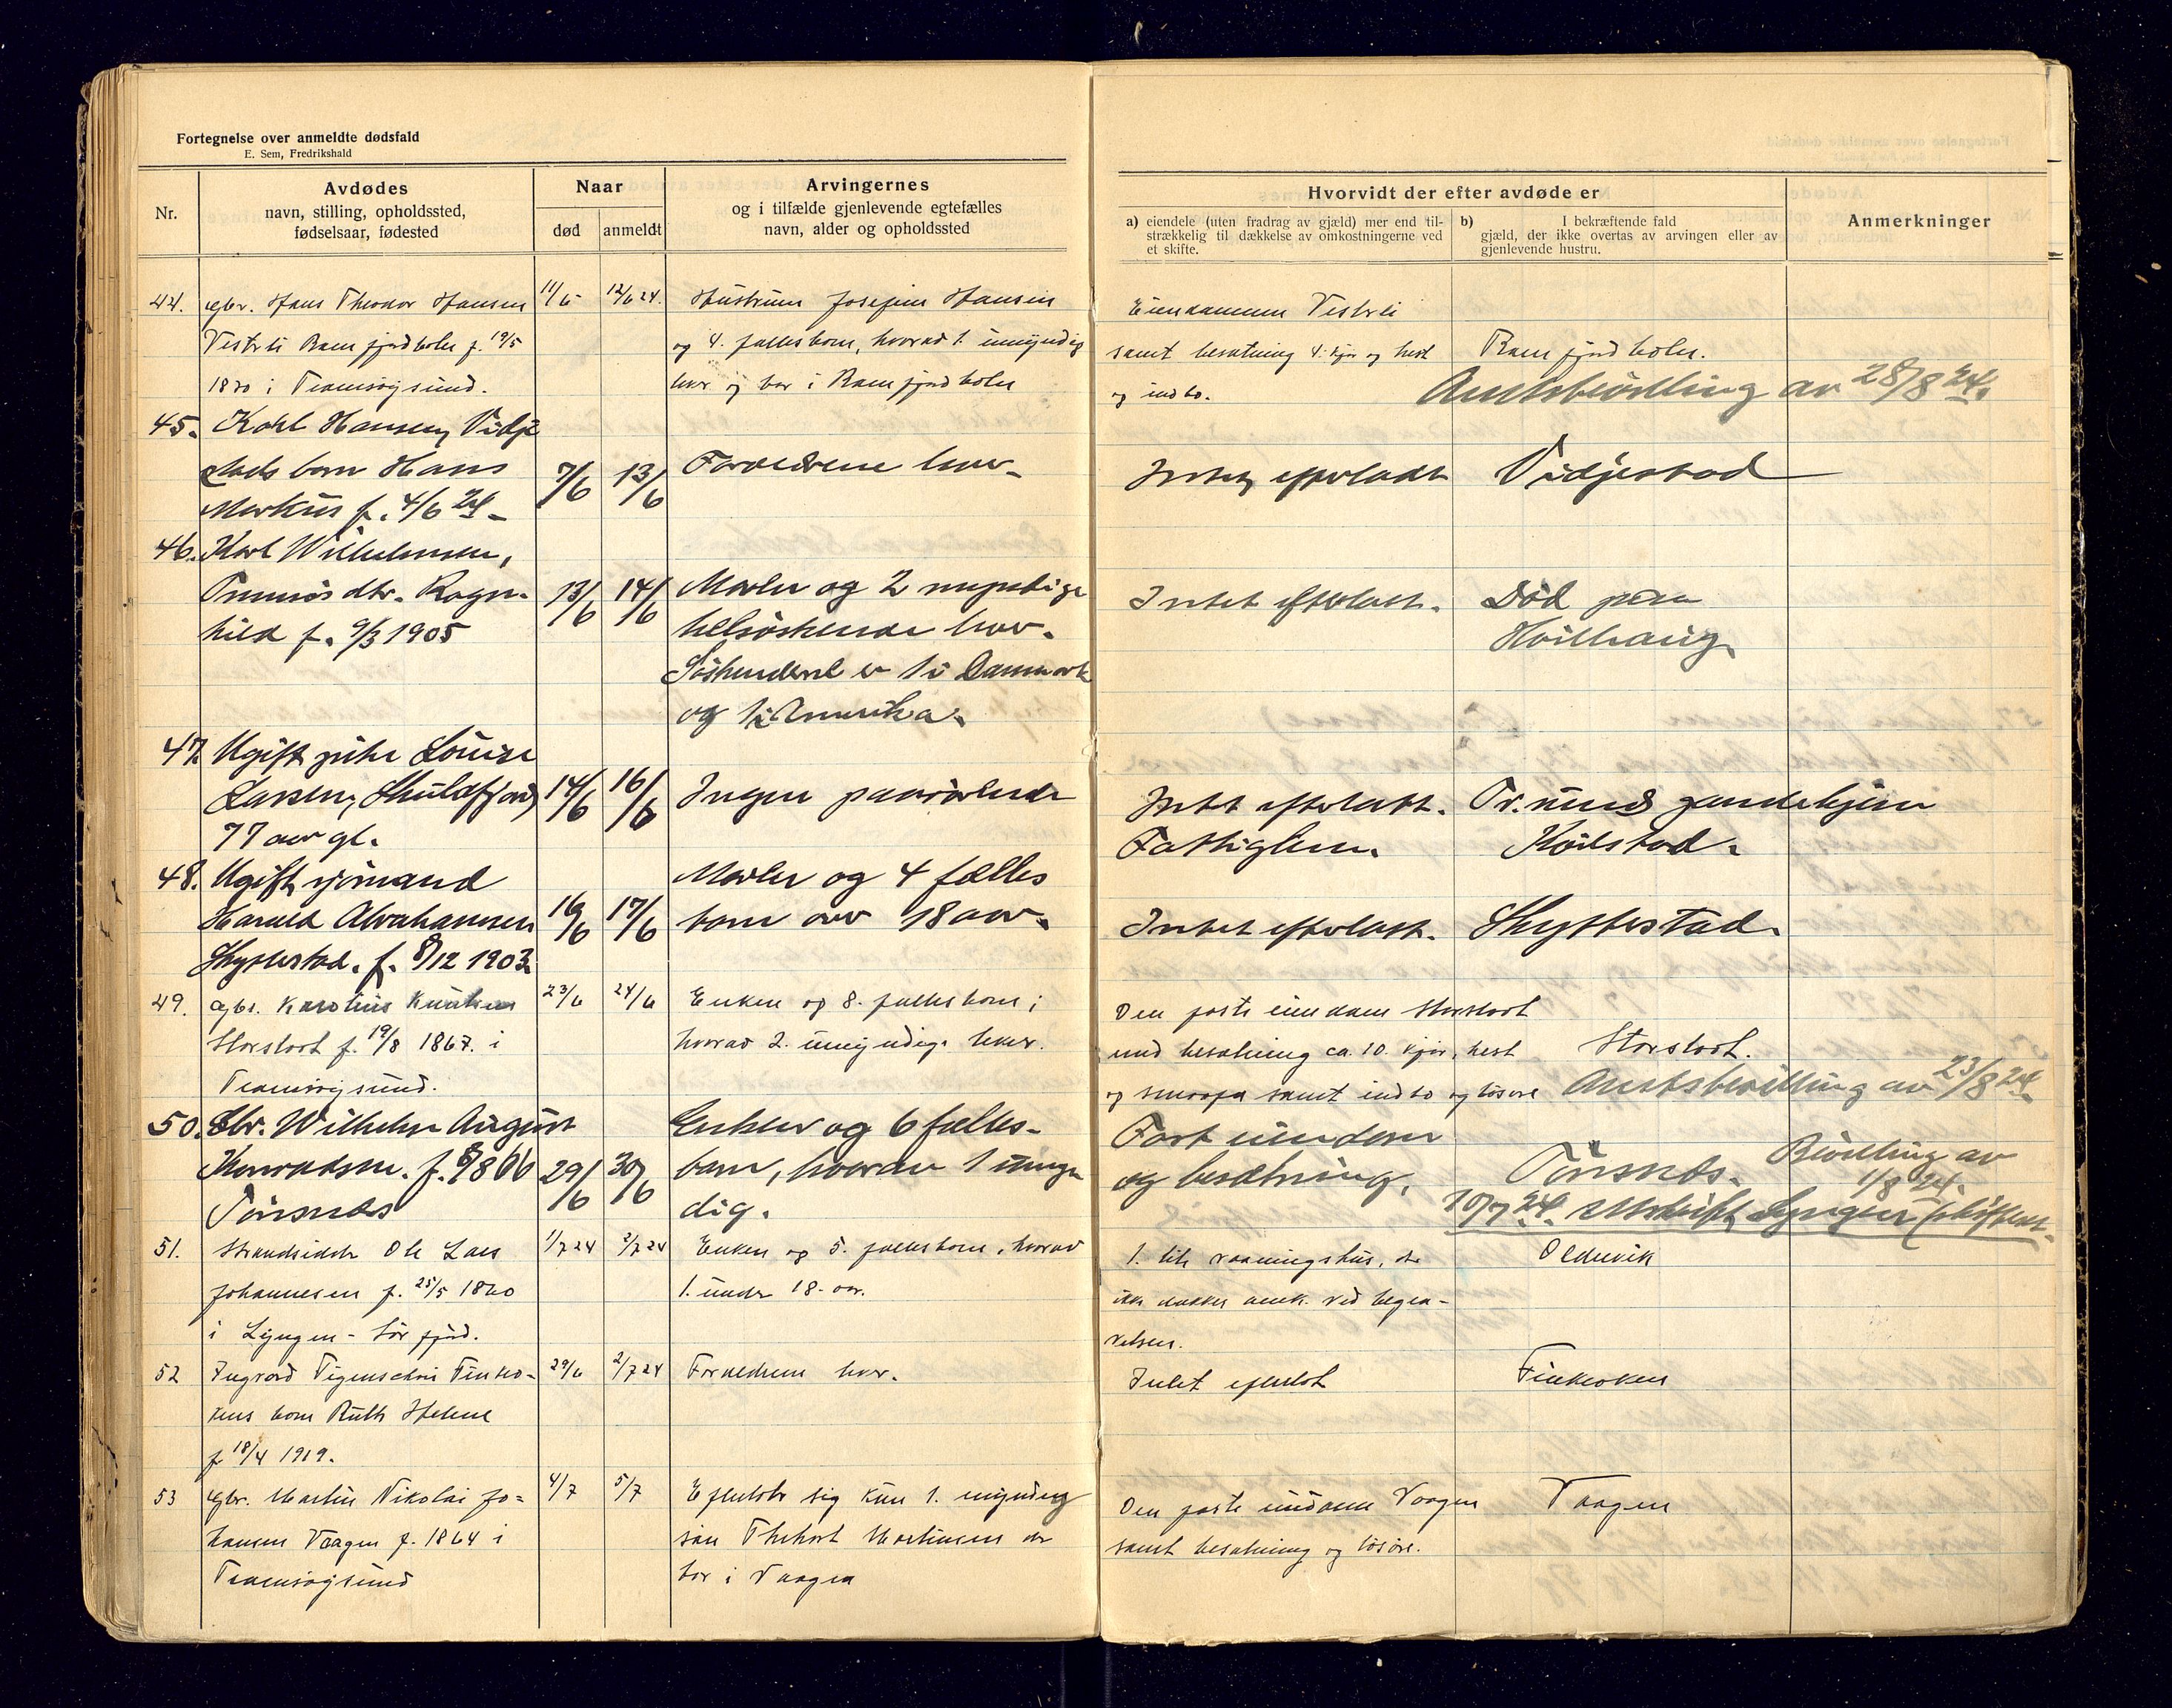 Fortegnelse over anmeldte dødsfald
E. Sem, Fredrikshald
Nr.
Avdødes
navn, stilling, opholdssted,
fødselsaar, fødested
Naar
død
anmeldt
Arvingernes
og i tilfælde gjenlevende egtefælles
navn, alder og opholdssted
Hvorvidt der efter avdøde er
a) eiendele (uten fradrag av gjæld) mer end til-
strækkelig til dækkelse av omkostningerne ved
et skifte.
b) I bekræftende fald
gjæld, der ikke overtas av arvingen eller av
gjenlevende hustru.
Anmerkninger
44. gbr. Hans Theodor Hansen 11/6 12/6 24. Hustruen Josefine Hansen
Vestli Ramfjordbotn f. 19/5 og 4. fælles born, hvorav 1. umyndig
1870 i Tromsøysund. bor i Ramfjordbotn
Eiendommen Vestli
samt besætning 4. kjør og hest Ramfjordbotn.
og indbo. Amtsbevilling av 28/8 24.
45. Karl Hansen, Vidje
stads barn Hans 7/6 13/6 Forældrene lever Intet efterladt Vidjestad
Markus f. 4/6 24
46. Karl Wilhelmsen,
Tromsø dtr. Ragn- 13/6 14/6 Moder og 2 myndige Intet efterladt. Død paa
hild f. 9/3 1905 helsøskende lever. Hvilhaug
Søskendene er 1 i Danmark
og 1 i Amerika.
47. Ugift pike Louise
Larsen, Skulsfjord 14/6 16/6 Ingen paarørende Intet efterladt. Tr. sunds gamlehjem
77 aar gl. Fattiglem. Kvilstad.
48. Ugift sjømand Moder og 4 fælles
Harald Abrahamsen 16/6 17/6 born over 18 aar. Intet efterladt. Skyttestad.
Skyttestad. f. 8/12 1903.
49. gbr. Karolius Knutsen 23/6 24/6 Enken og 8. fælles born; Den faste eiendom Storslett
Storslett f. 19/8 1867. i hvorav 2. umyndige lever. med besætning ca. 10. kjør, hest Storslett.
Tromsøysund. og smaafæ samt indbo og løsøre Amtsbevilling av 23/8 24.
50. Gbr. Wilhelm August Enken og 6 fælles- Fast eiendom
Konradsen. f. 1866 29/6 30/6 born, hvorav 1 umyn- og besætning. Tønsnes. Bevilling av
Tønsnes dig. 1/8 24.
10/7 24. Utskrift Lyngen skifteret.
51. Strandsidder Ole Lars 1/7 24 2/7 24 Enken og 5. fælles born, hvorav 1. lite vaaningshus, der Oldervik
Johannesen f. 25/5 1860 1. under 18. aar. ikke dækker omk. ved begra-
i Lyngen - Sørfjord. velsen.
52 Ingvard Finkro- 29/6 2/7 24 Forældrene lever. Intet efterlot Finkroken
kens born Ruth Helene
f. 18/4 1919.
53 gbr. Martin Nikolai Jo- 4/7 5/7 Efterlater sig kun 1. myndig Den faste eiendom Vaagen Vaagen
hansen Vaagen f. 1864 i søn Martinsen der samt besætning og løsøre.
Tromsøysund bor i Vaagen